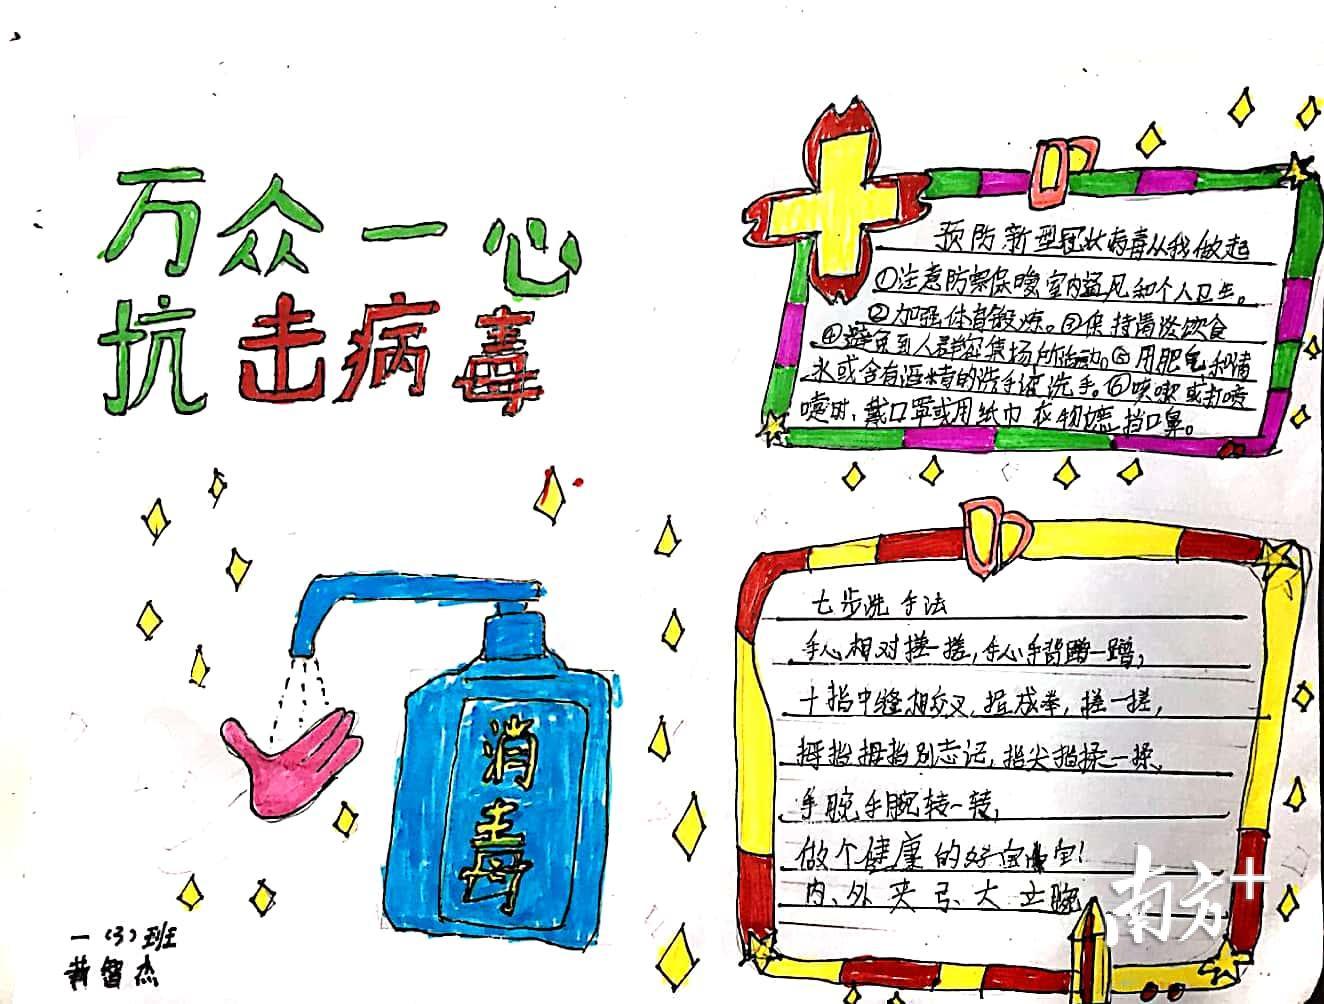 万众一心
抗击病毒
预防新型冠状病毒从我做起
①注意防寒保暖室内通风和个人卫生。
②加强体育锻炼。③保持清淡饮食
④避免到人群密集场所活动。⑤用肥皂和清
水或含有酒精的洗手液洗手。⑥咳嗽或打喷
嚏时、戴口罩或用纸巾衣物遮挡口鼻。
消
毒
七步洗手法
手心相对搓一搓,手心手背蹭一蹭,
十指中缝相交叉,握成拳,搓一搓,
拇指拇指别忘记,指尖指揉一揉、
手腕手腕转一转,
做个健康的好宝宝!
内、外夹弓、大立腕
一(3)班
黄智杰
南方+